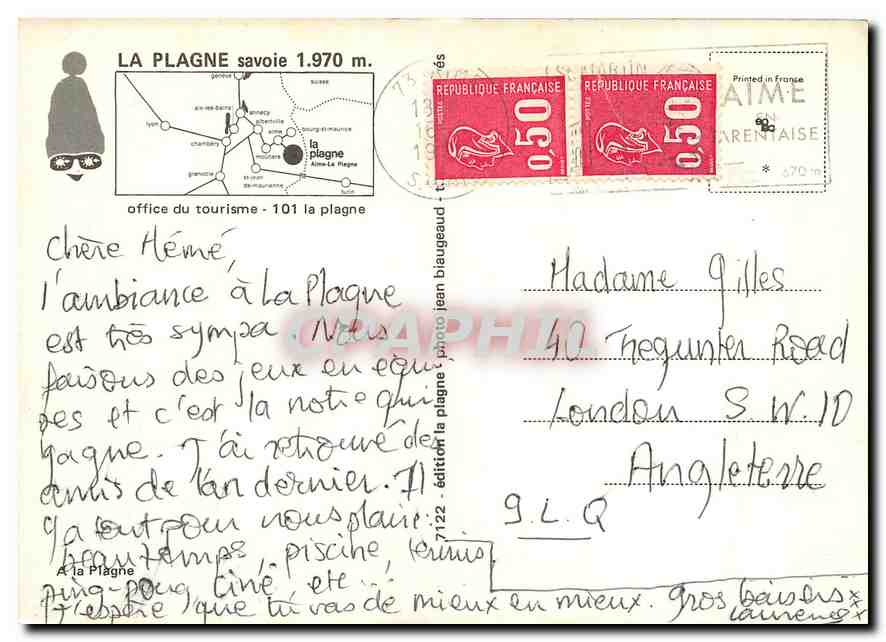 LA PLAGNE savoie 1.970 m.
genève
suisse
aix-les-bains
annecy
lyon
albertville
aime
bourg-st-maurice
chambéry
moutiers
la
plagne
Aime-La Plagne
grenoble
st-jean
de-maurienne
turin
office du tourisme - 101 la plagne
Chère Mémé,
l'ambiance à La Plagne
est très sympa. Nous
faisons des jeux en équi-
pes et c'est la notre qui
gagne. J'ai retrouvé des
amis de l'an dernier. Il
y a tout pour nous plaire:
beau temps, piscine, tennis,
ping-pong, ciné, etc...
J'espère que tu vas de mieux en mieux. Gros baisers xx
Laurence xx
A la Plagne
7122 - édition la plagne - photo jean biaugeaud - t
és
REPUBLIQUE FRANÇAISE
POSTES
0,50
REPUBLIQUE FRANÇAISE
POSTES
0,50
Printed in France
AIME
EN
TARENTAISE
* 670 m
Madame Gilles
40 Tregunter Road
London S.W.10
Angleterre
S.L.Q
CPAPHIL